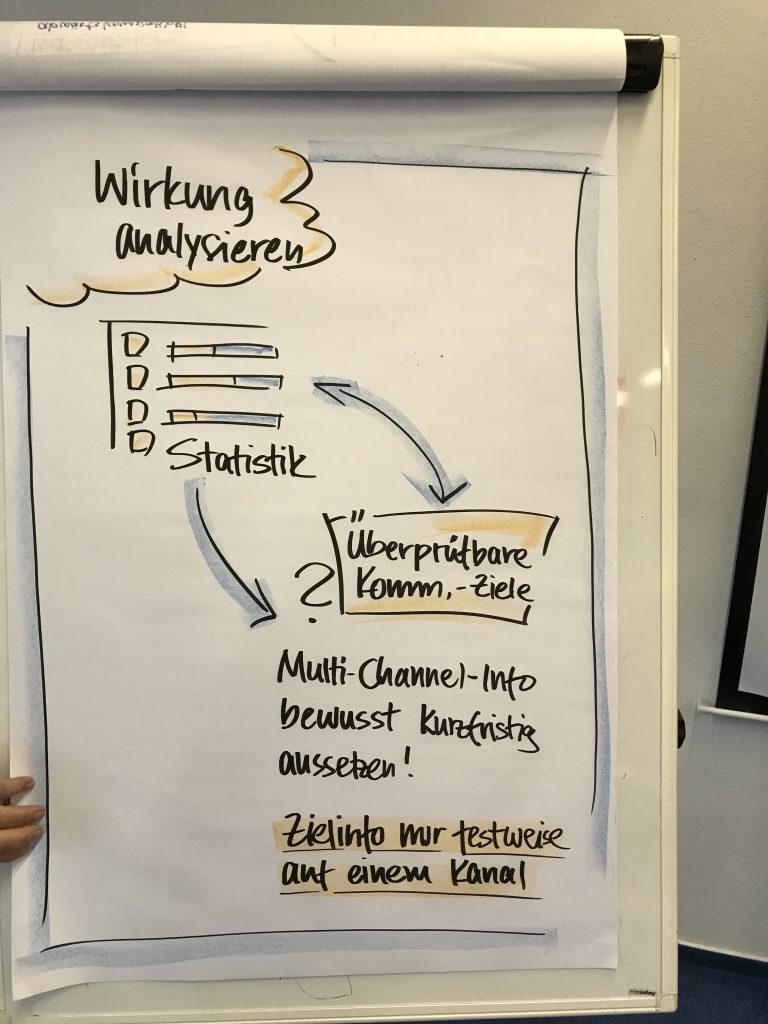 Wirkung
analysieren
Statistik
Überprüfbare
Komm.-Ziele
?
Multi-Channel-Info
bewusst kurzfristig
aussetzen!
Zielinfo nur testweise
auf einem Kanal